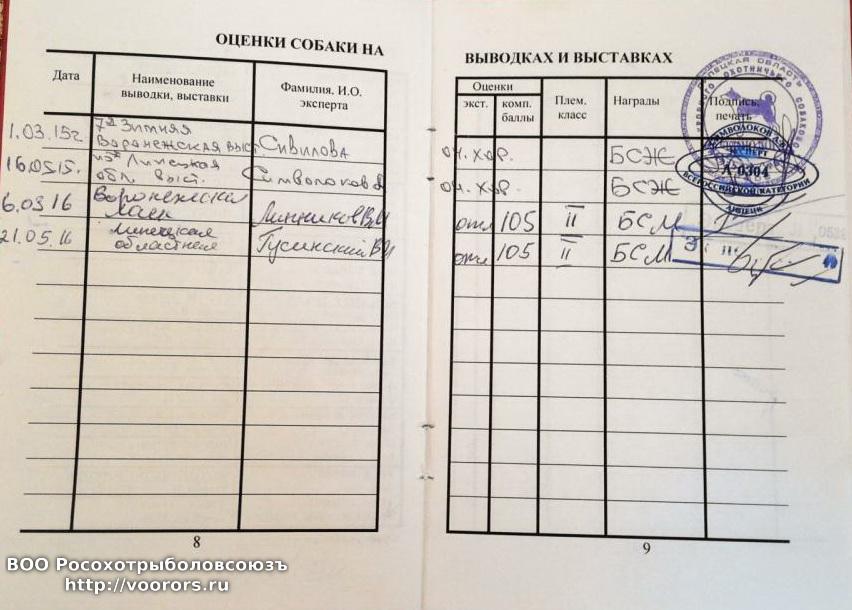 ОЦЕНКИ СОБАКИ НА
Дата
Наименование
выводки, выставки
Фамилия, И.О.
эксперта
1.03.15г.
7ая Зимняя
Воронежская выст.
Сивилова
16.05.15.
Липецкая
обл. выст.
Символоков
6.03.16
Воронежский
Линников В.И
21.05.16
Липецкая
областная
Гусинский В.И
8
ВЫВОДКАХ И ВЫСТАВКАХ
Оценки
экст.
комп.
баллы
Плем.
класс
Награды
Подпись,
печать
оч. хор.
БСЖ
оч. хор.
БСЖ
отл
105
II
БСМ
отл
105
II
БСМ
ЭКСПЕРТ
А-0304
ВСЕРОССИЙСКОЙ КАТЕГОРИИ
ЛИПЕЦК
9
ВОО Росохотрыболовсоюзъ
http://voorors.ru